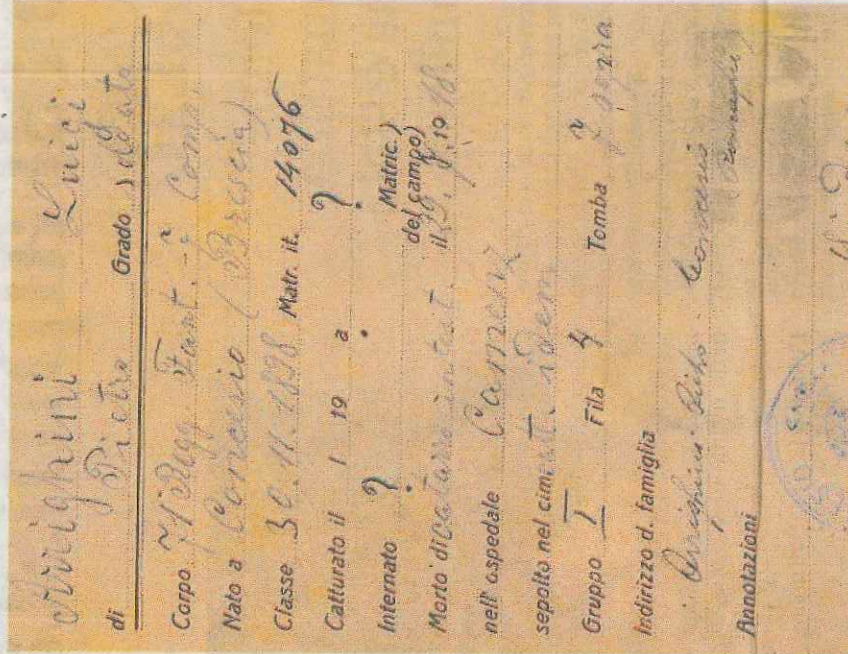 Arrighini Luigi
di Pietro Grado soldato
Corpo 71 Regg. Fant. Comp.
Nato a Concesio (Brescia)
Classe 30.11.1898 Matr. it. 14076
Catturato il 1 19 a ?
Internato ? Matric.) del campo)
Morto di catarro intest. il 19 18.
nell'ospedale Camenz
sepolto nel cimit. idem
Gruppo I Fila 4 Tomba
Indirizzo d. famiglia
Arrighini Pietro Concesio
Annotazioni